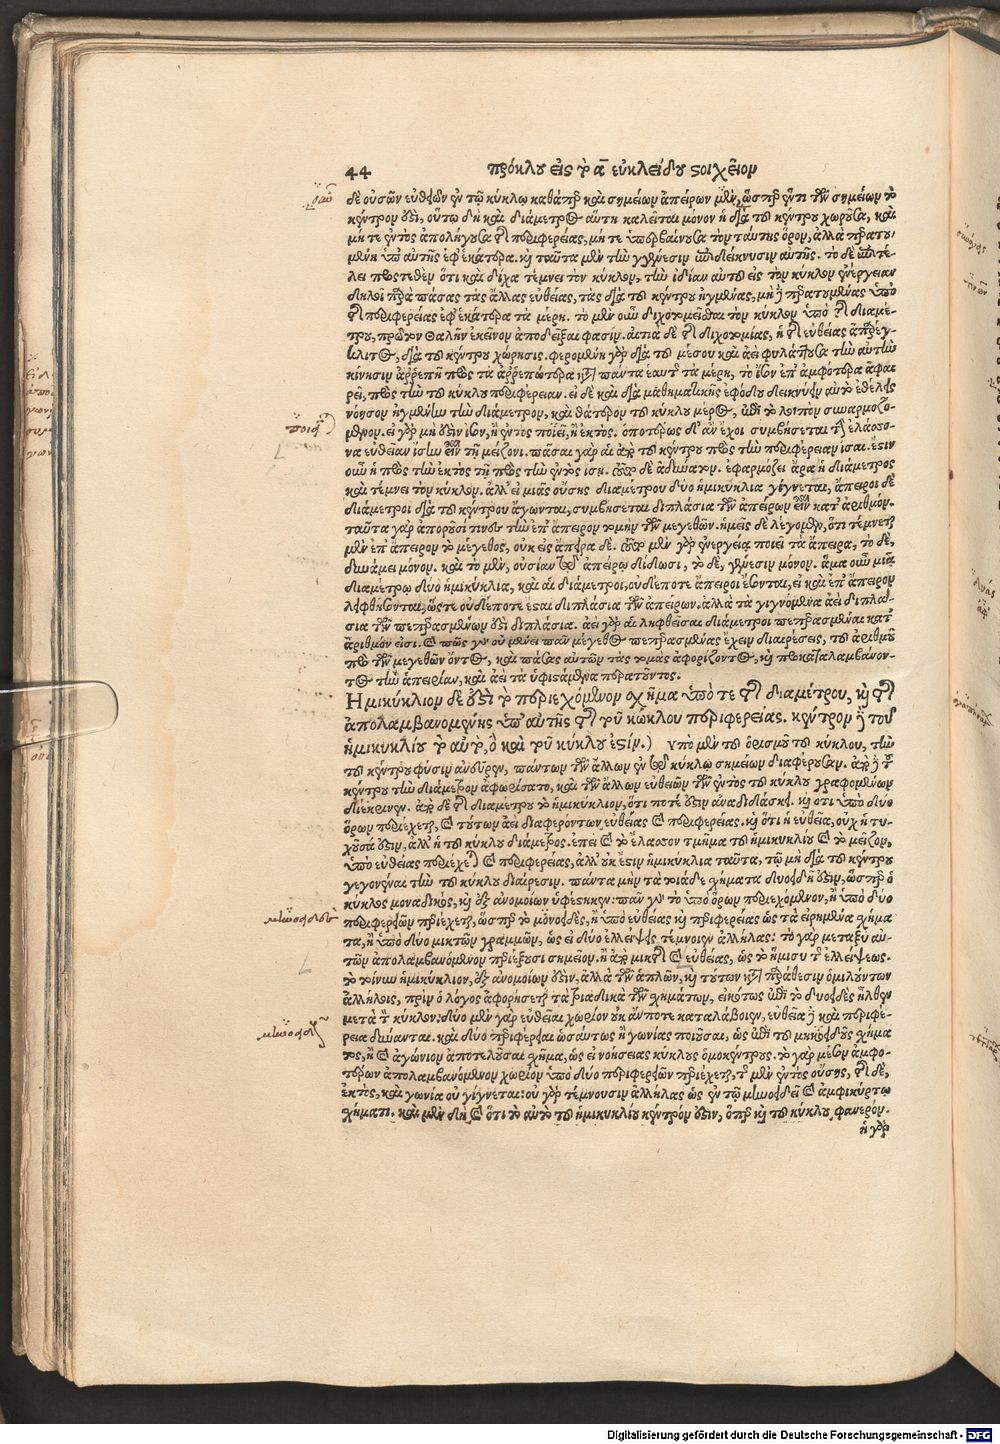 44 πρόκλου εἰς τὸ α εὐκλείδου στοιχεῖον
δὲ οὐσῶν εὐθειῶν ἐν τῷ κύκλῳ καθάπερ καὶ σημείων ἀπείρων μὲν, ὥσπερ ἔν τι τῶν σημείων τὸ
κέντρον ἐστὶ, οὕτω δὴ καὶ διάμετρος αὕτη καλεῖται μόνον ἡ διὰ τοῦ κέντρου χωροῦσα, καὶ
μήτε ἐντὸς ἀπολήγουσα τῆς περιφερείας, μήτε ὑπερβαίνουσα τὸν ταύτης ὅρον, ἀλλὰ περατου
μένη ὑπ' αὐτῆς ἐφ' ἑκάτερα. καὶ ταῦτα μὲν τὴν γένεσιν ἐπιδείκνυσιν αὐτῆς. τὸ δὲ ἐπὶ τέ-
λει προστεθὲν ὅτι καὶ δίχα τέμνει τὸν κύκλον, τὴν ἰδίαν αὐτοῦ εἰς τὸν κύκλον ἐνέργειαν
δηλοῖ παρὰ πάσας τὰς ἄλλας εὐθείας, τὰς διὰ τοῦ κέντρου ἠγμένας, μὴ δὲ περατουμένας ὑπὸ
τῆς περιφερείας ἐφ' ἑκάτερα τὰ μέρη. τὸ μὲν οὖν διχοτομεῖσθαι τὸν κύκλον ὑπὸ τῆς διαμέ-
τρου, πρῶτον Θαλῆν ἐκεῖνον ἀποδεῖξαι φασίν. αἰτία δὲ τῆς διχοτομίας, ἡ τῆς εὐθείας ἀπαρέγ-
κλιτος, διὰ τοῦ κέντρου χώρησις. φερομένη γὰρ διὰ τοῦ μέσου καὶ ἀεὶ φυλάττουσα τὴν αὐτὴν
κίνησιν ἀρρεπῆ πρὸς τὰ ἑκάτερα κατὰ πάντα ἑαυτῆς τὰ μέρη, τὸ ἴσον ἐπ' ἀμφότερα ἀφαι
ρεῖ, πρὸς τὴν τοῦ κύκλου περιφέρειαν. εἰ δὲ καὶ διὰ μαθηματικῆς ἐφόδου δεικνύειν αὐτὸ ἐθέλεις
νόησον ἠγμένην τὴν διάμετρον, καὶ θάτερον τοῦ κύκλου μέρος, ἐπὶ τὸ λοιπὸν ἐναρμοζό-
μενον. εἰ γὰρ μὴ ἐστὶν ἴσον, ἢ ἐντὸς ποιεῖ, ἢ ἐκτός. ὁποτέρως δ' ἂν ἔχοι συμβήσεται τὴν ἐλάσσο-
να εὐθεῖαν ἴσην εἶναι τῇ μείζονι. πᾶσαι γὰρ αἱ ἀπὸ τοῦ κέντρου πρὸς τὴν περιφέρειαν ἴσαι. ἔστιν
οὖν ἡ πρὸς τὴν ἐκτὸς τῇ πρὸς τὴν ἐντὸς ἴση. τοῦτο δὲ ἀδύνατον. ἐφαρμόζει ἄρα ἡ διάμετρος
καὶ τέμνει τὸν κύκλον. ἀλλ' εἰ μιᾶς οὔσης διαμέτρου δύο ἡμικύκλια γίγνεται, ἄπειροι δὲ
διάμετροι διὰ τοῦ κέντρου ἄγονται, συμβήσεται διπλάσια τῶν ἀπείρων εἶναι κατ' ἀριθμόν.
ταῦτα γὰρ ἀποροῦσί τινες τὴν ἐπ' ἄπειρον τομὴν τῶν μεγεθῶν. ἡμεῖς δὲ λέγομεν, ὅτι τέμνεται
μὲν ἐπ' ἄπειρον τὸ μέγεθος, οὐκ εἰς ἄπειρα δέ. τοῦτο μὲν γὰρ ἐνεργείᾳ ποιεῖ τὰ ἄπειρα, τὸ δὲ,
δυνάμει μόνον. καὶ τὸ μὲν, οὐσίαν τῷ ἀπείρῳ δίδωσι, τὸ δὲ, γένεσιν μόνον. ἅμα οὖν μιᾷ
διαμέτρῳ δύο ἡμικύκλια, καὶ αἱ διάμετροι, οὐδέποτε ἄπειροι ἔσονται, εἰ καὶ ἐπ' ἄπειρον
ληφθήσονται, ὥστε οὐδέποτε ἔσται διπλάσια τῶν ἀπείρων, ἀλλὰ τὰ γιγνόμενα ἀεὶ διπλά-
σια τῶν πεπερασμένων ἐστὶ διπλάσια. ἀεὶ γὰρ αἱ ληφθεῖσαι διάμετροι πεπερασμέναι κατ'
ἀριθμόν εἰσι. καὶ πῶς γὰρ οὐ μέλλει πᾶν μέγεθος πεπερασμένας ἔχειν διαιρέσεις, τοῦ ἀριθμοῦ
πρὸ τῶν μεγεθῶν ὄντος, καὶ πάσας αὐτῶν τὰς τομὰς ἀφορίζοντος, καὶ προκαταλαμβάνον-
τος τὴν ἀπειρίαν, καὶ ἀεὶ τὰ ὑφιστάμενα περατοῦντος.
Ἡμικύκλιον δέ ἐστι τὸ περιεχόμενον σχῆμα ὑπό τε τῆς διαμέτρου, καὶ τῆς
ἀπολαμβανομένης ὑπ' αὐτῆς τῆς τοῦ κύκλου περιφερείας. κέντρον δὲ τοῦ
ἡμικυκλίου τὸ αὐτὸ, ὃ καὶ τοῦ κύκλου ἐστίν.) Ὑπὸ μὲν τοῦ ὁρισμοῦ τοῦ κύκλου, τὴν
τοῦ κέντρου φύσιν ἀνεῦρεν, πάντων τῶν ἄλλων ἐν τῷ κύκλῳ σημείων διαφέρουσαν. ἀπὸ δὲ τοῦ
κέντρου τὴν διάμετρον ἀφωρίσατο, καὶ τῶν ἄλλων εὐθειῶν τῶν ἐντὸς τοῦ κύκλου γραφομένων
διέκρινεν. ἀπὸ δὲ τῆς διαμέτρου τὸ ἡμικύκλιον, ὅτι ποτέ ἐστιν ἀναδιδάσκει. καὶ ὅτι ὑπὸ δύο
ὅρων περιέχεται, καὶ τούτων ἀεὶ διαφερόντων εὐθείας καὶ περιφερείας. καὶ ὅτι ἡ εὐθεῖα, οὐχ ἡ τυ-
χοῦσά ἐστιν, ἀλλ' ἡ τοῦ κύκλου διάμετρος. ἐπεὶ καὶ τὸ ἔλασσον τμῆμα τοῦ ἡμικυκλίου καὶ τὸ μεῖζον,
ὑπὸ εὐθείας περιέχεται καὶ περιφερείας, ἀλλ' οὐκ ἔστιν ἡμικύκλια ταῦτα, τῷ μὴ διὰ τοῦ κέντρου
γεγονέναι τὴν τοῦ κύκλου διαίρεσιν. πάντα μὲν τὰ τοιάδε σχήματα δυοειδῆ ἐστιν, ὥσπερ ὁ
κύκλος μοναδικὸς, καὶ ἐξ ἀνομοίων ὑφέστηκεν: πᾶν γὰρ τὸ ὑπὸ ὅρων περιεχόμενον, ἢ ὑπὸ δύο
περιφερειῶν περιέχεται, ὥσπερ τὸ μονοειδὲς, ἢ ὑπὸ εὐθείας καὶ περιφερείας ὡς τὰ εἰρημένα σχήμα
τα, ἢ ὑπὸ δύο μικτῶν γραμμῶν, ὡς εἰ δύο ἐλλείψεις τέμνοιεν ἀλλήλας: τὸ γὰρ μεταξὺ αὐ-
τῶν ἀπολαμβανόμενον περιέξουσι σημεῖον. ἢ ἀπὸ μικτῆς καὶ εὐθείας, ὡς τὸ ἥμισυ τῆς ἐλλείψεως.
τὸ τοίνυν ἡμικύκλιον, ἐξ ἀνομοίων ἐστὶν, ἀλλὰ τῶν ἁπλῶν, καὶ τούτων κατὰ παράθεσιν ὁμιλούντων
ἀλλήλοις, πρὶν ὁ λόγος ἀφορήσεται τὰ τριαδικὰ τῶν σχημάτων, εἰκότως ἐπὶ τὸ δυοειδὲς ἦλθεν
μετὰ τὸν κύκλον: δύο μὲν γὰρ εὐθεῖαι χωρίον οὐκ ἄν ποτε καταλάβοιεν, εὐθεῖα δὲ καὶ περιφέ-
ρεια δύνανται. καὶ δύο περιφέρειαι ὡσαύτως ἢ γωνίας ποιοῦσαι, ὡς ἐπὶ τοῦ μηνοειδοῦς σχήμα
τος, ἢ καὶ ἀγώνιον ἀποτελοῦσαι σχῆμα, ὡς εἰ νοήσειας κύκλους ὁμοκέντρους. τὸ γὰρ μέσον ἀμφο-
τέρων ἀπολαμβανόμενον χωρίον ὑπὸ δύο περιφερειῶν περιέχεται, τῆς μὲν ἐντὸς οὔσης, τῆς δὲ,
ἐκτὸς, καὶ γωνία οὐ γίγνεται: οὐ γὰρ τέμνουσιν ἀλλήλας ὡς ἐν τῷ μηνοειδεῖ καὶ ἀμφικύρτῳ
σχήματι. καὶ μὲν δὴ καὶ ὅτι τὸ αὐτὸ τοῦ ἡμικυκλίου κέντρόν ἐστιν, ὅπερ καὶ τοῦ κύκλου, φανερόν.
ἡ γὰρ
Digitalisierung gefördert durch die Deutsche Forschungsgemeinschaft - DFG